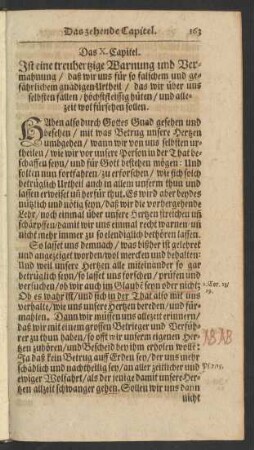 Das zehende Capitel. 163
Das X. Capitel.
Ist eine treuhertzige Warnung und Ver-
mahnung / daß wir uns für so falschem und ge-
fährlichem gnädigen Urtheil / das wir über uns
selbsten fällen / höchstfleissig hüten / und alle-
zeit wol fürsehen sollen.
HAben also durch Gottes Gnad gesehen und
besehen / mit was Betrug unsere Hertzen
umbgehen / wann wir von uns selbsten ur-
theilen / wie wir vor unsere Person in der That be-
schaffen seyn / und für Gott bestehen mögen: Und
sollen nun fortfahren / zu erforschen / wie sich solch
betrüglich Urtheil auch in allem unserm thun und
lassen erweiset uñ herfür thut. Es wird aber beydes
nützlich und nötig seyn / daß wir die vorhergehende
Lehr / noch einmal über unsere Hertzen streichen uñ
schärpffen / damit wir uns einmal recht warnen uñ
nicht mehr immer zu so elendiglich bethören lassen.
So lasset uns demnach / was bißher ist gelehret
und angezeiget worden / wol mercken und behalten:
Und weil unsere Hertzen alle miteinander so gar
betrüglich seyn / so lasset uns forschen / prüfen und
versuchen / ob wir auch im Glaubē seyn oder nicht;
Ob es wahr ist / und sich in der That also mit uns
verhalte / wie uns unsere Hertzen bereden / und für-
mahlen. Dann wir müssen uns allezeit erinnern /
daß wir mit einem grossen Betrieger und Verfüh-
rer zu thun haben / so offt wir unserm eigenen Her-
tzen zuhören / und Bescheid bey ihm erholen wolle:
Ja daß kein Betrug auff Erden sey / der uns mehr
schädlich und nachtheilig sey / an aller zeitlicher und
ewiger Wolfahrt / als der jenige damit unsere Her-
tzen allzeit schwanger gehen. Sollen wir uns dann
nicht